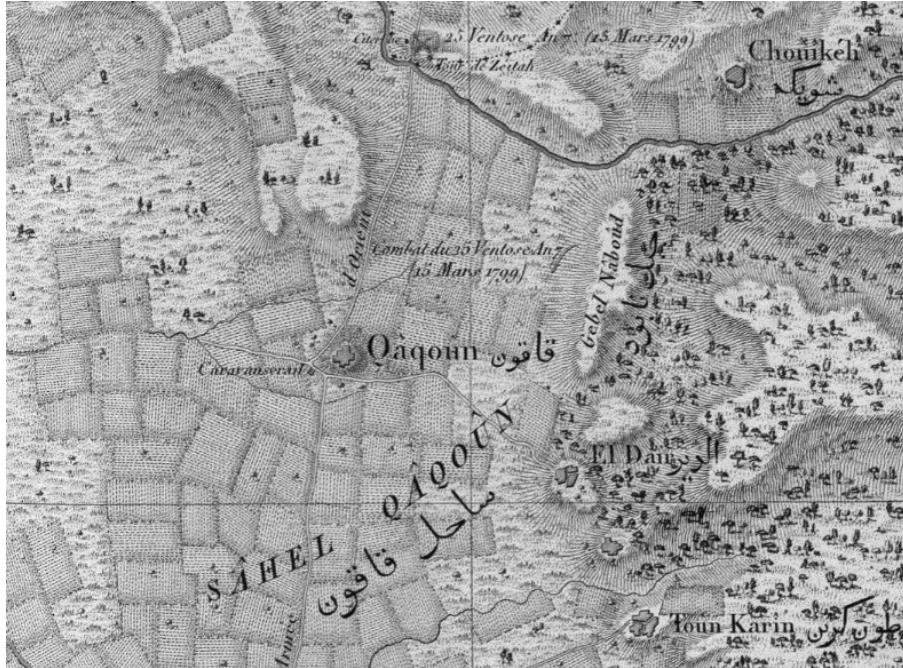 25 Ventose An 7. (15 Mars 1799)
Citerne
Tour de Zeitah
Chouikeh
شويكه
d'Orient
Combat du 25 Ventose An 7
(15 Mars 1799)
Gebel Naboud
Qâqoun قاقون
Caravanserail
El Dair الدير
SÂHEL QÂQOUN
ساحل قاقون
Armée
Toun Karin طون كرين